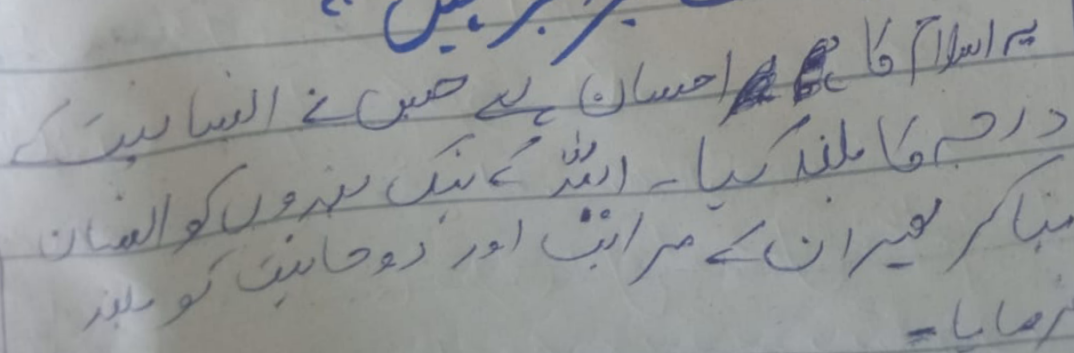 یہ اسلام کا احسان ہے جس نے انسانیت کے
درجہ کا بلند کیا۔ اللہ کے نیک بندوں کو انسان
بنا کر پھر ان کے مراتب اور روحانیت کو بلند
فرمایا۔